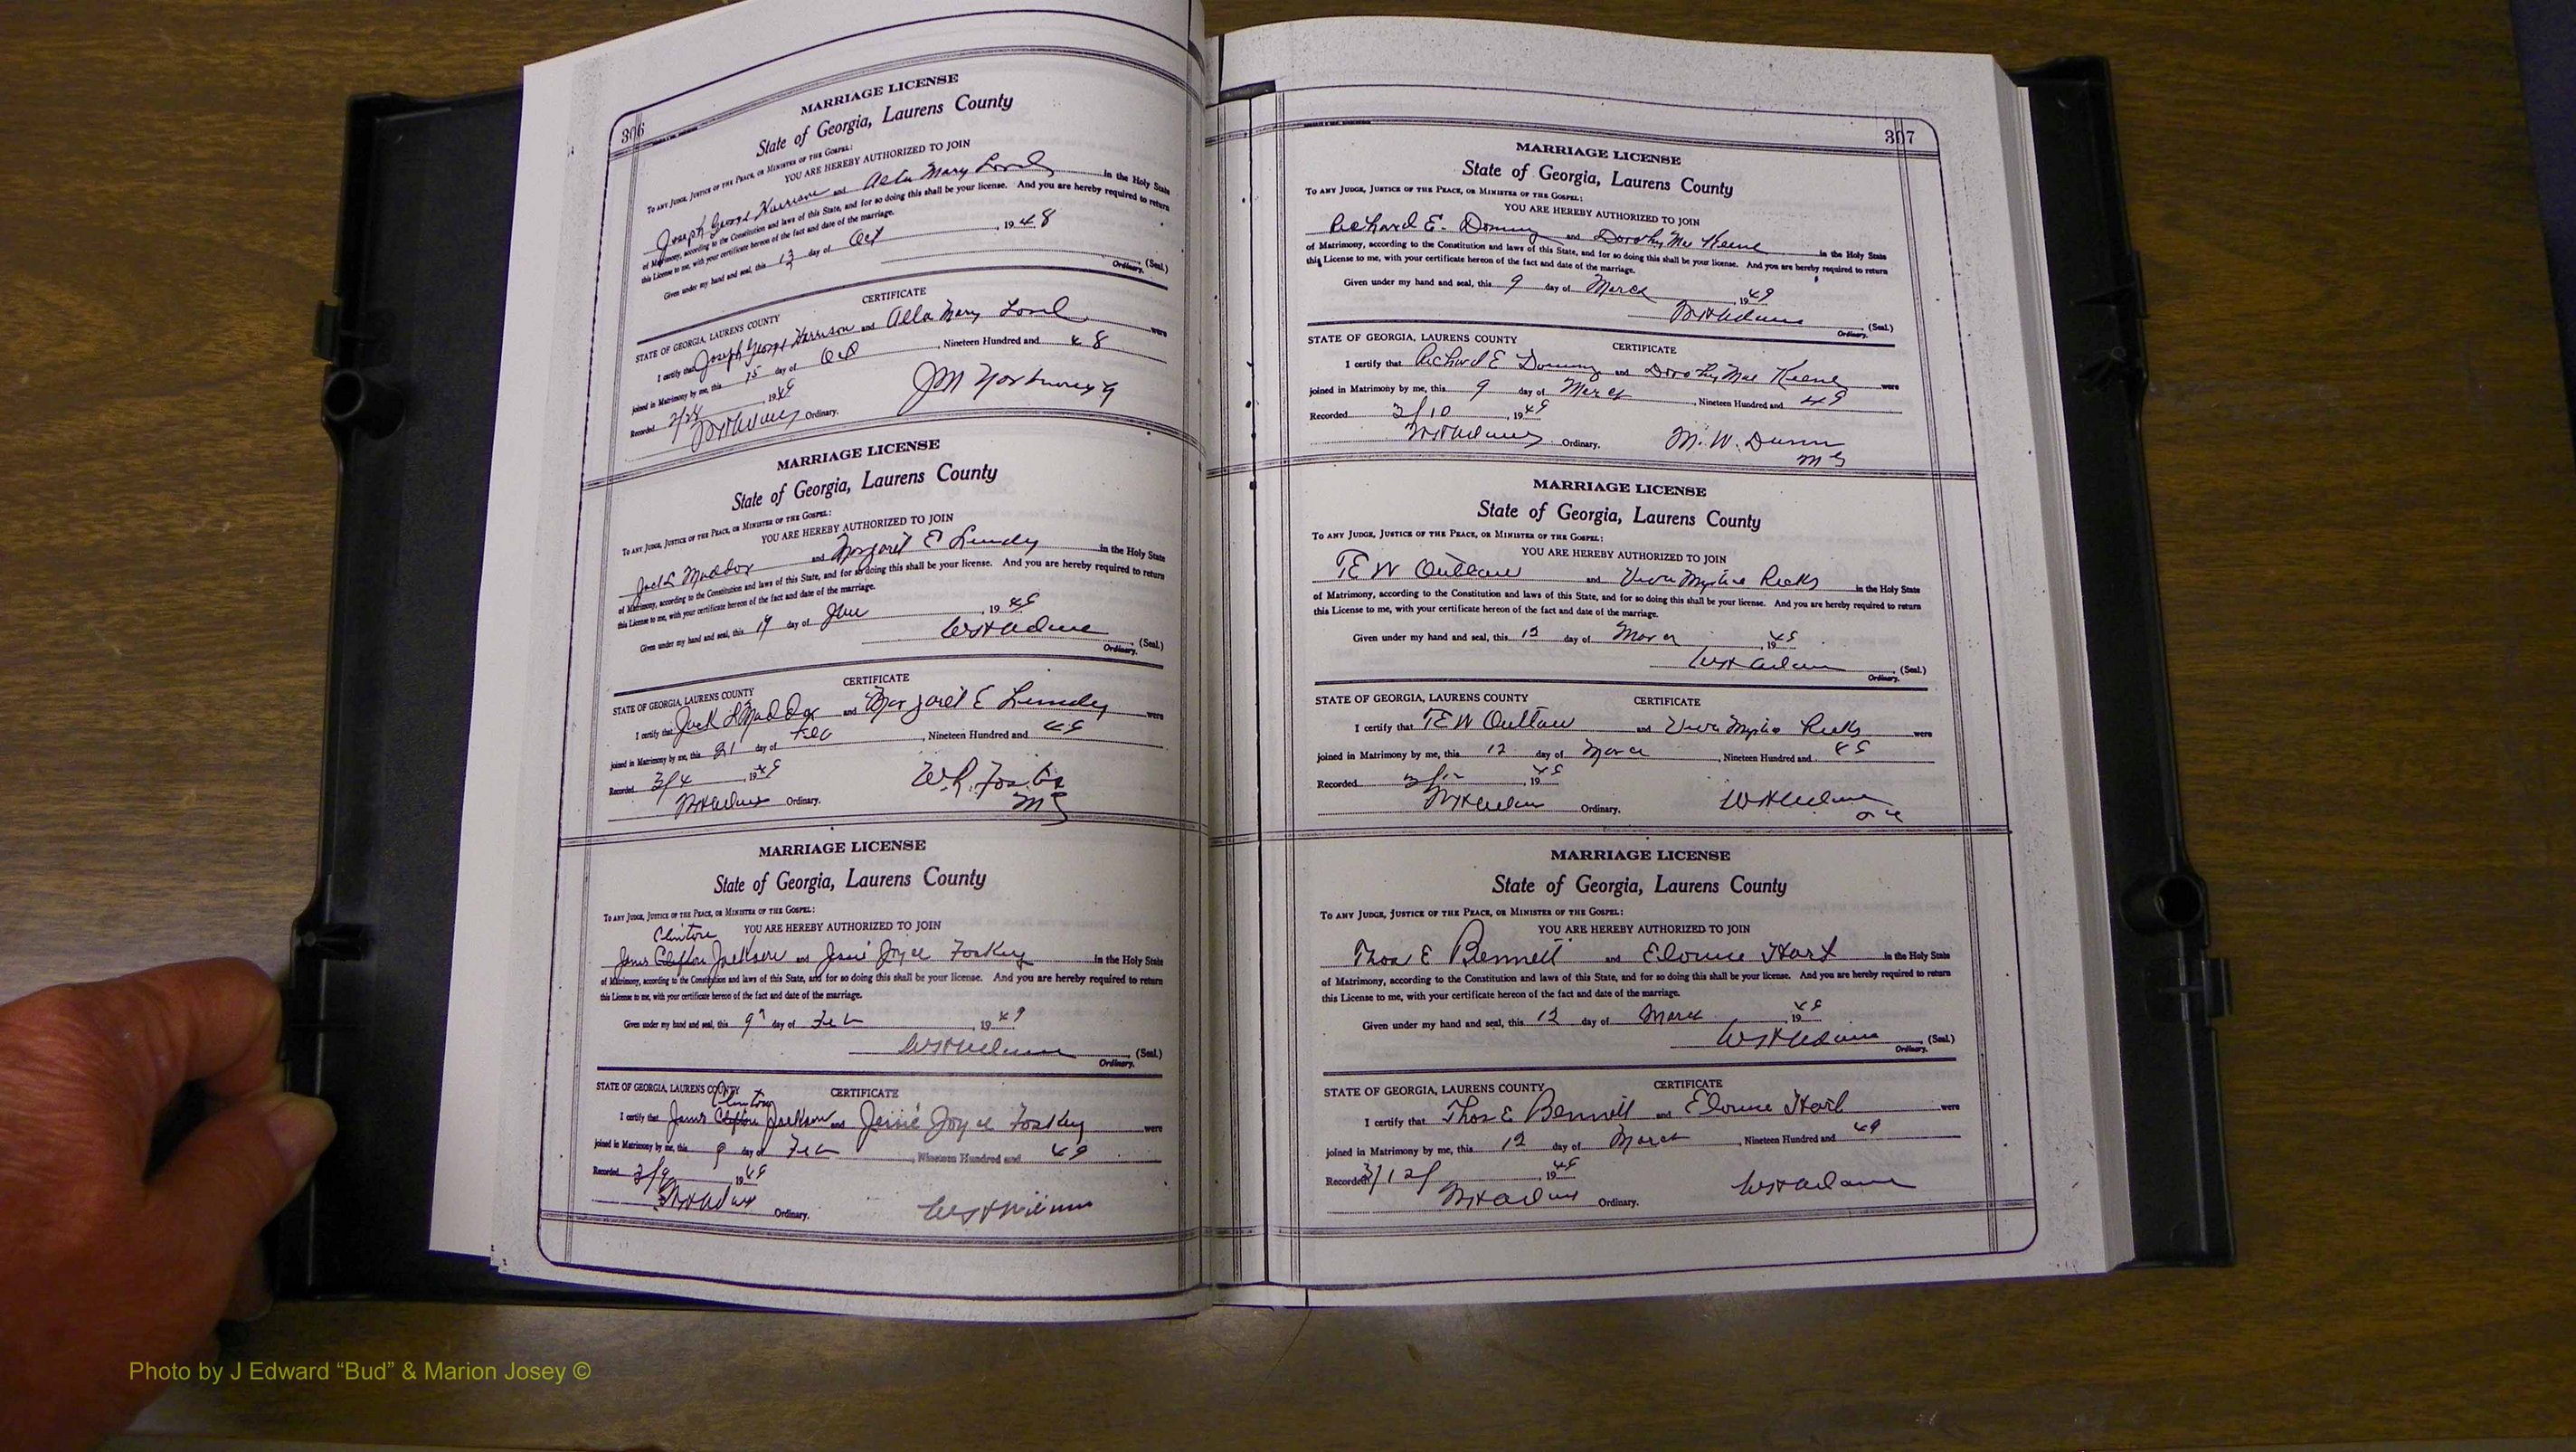 306
MARRIAGE LICENSE
State of Georgia, Laurens County
To any Judge, Justice of the Peace, or Minister of the Gospel:
YOU ARE HEREBY AUTHORIZED TO JOIN
Joseph George Harrison and Alla Mary in the Holy State
of Matrimony, according to the Constitution and laws of this State, and for so doing this shall be your license. And you are hereby required to return
this License to me, with your certificate hereon of the fact and date of the marriage.
Given under my hand and seal, this 13 day of Oct , 1948
(Seal.)
Ordinary.
CERTIFICATE
STATE OF GEORGIA, LAURENS COUNTY
I certify that Joseph George Harrison and Alla Mary were
joined in Matrimony by me, this 15 day of Oct , Nineteen Hundred and 48
Recorded 1949
Ordinary.
MARRIAGE LICENSE
State of Georgia, Laurens County
To any Judge, Justice of the Peace, or Minister of the Gospel:
YOU ARE HEREBY AUTHORIZED TO JOIN
Jack L Maddox and Margaret E in the Holy State
of Matrimony, according to the Constitution and laws of this State, and for so doing this shall be your license. And you are hereby required to return
this License to me, with your certificate hereon of the fact and date of the marriage.
Given under my hand and seal, this 19 day of , 1949
WH Adams (Seal.)
Ordinary.
CERTIFICATE
STATE OF GEORGIA, LAURENS COUNTY
I certify that Jack L Maddox and Margaret E were
joined in Matrimony by me, this 21 day of Feb , Nineteen Hundred and 49
Recorded 3/4 , 1949
WH Adams Ordinary.
W.R.
MG
MARRIAGE LICENSE
State of Georgia, Laurens County
To any Judge, Justice of the Peace, or Minister of the Gospel:
YOU ARE HEREBY AUTHORIZED TO JOIN
Clinton
James Clifton Jackson and Jessie Joyce Foskey in the Holy State
of Matrimony, according to the Constitution and laws of this State, and for so doing this shall be your license. And you are hereby required to return
this License to me, with your certificate hereon of the fact and date of the marriage.
Given under my hand and seal, this 9 day of Feb , 1949
WH Adams (Seal.)
Ordinary.
STATE OF GEORGIA, LAURENS COUNTY CERTIFICATE
Clinton
I certify that James Clifton Jackson and Jessie Joyce Foskey were
joined in Matrimony by me, this 9 day of Feb , Nineteen Hundred and 49
Recorded 3/9 1949
WH Adams Ordinary.
307
MARRIAGE LICENSE
State of Georgia, Laurens County
To any Judge, Justice of the Peace, or Minister of the Gospel:
YOU ARE HEREBY AUTHORIZED TO JOIN
Richard E. Dominy and Dorothy Mae Keene in the Holy State
of Matrimony, according to the Constitution and laws of this State, and for so doing this shall be your license. And you are hereby required to return
this License to me, with your certificate hereon of the fact and date of the marriage.
Given under my hand and seal, this 9 day of March , 1949
WH Adams (Seal.)
Ordinary.
STATE OF GEORGIA, LAURENS COUNTY CERTIFICATE
I certify that Richard E Dominy and Dorothy Mae Keene were
joined in Matrimony by me, this 9 day of March , Nineteen Hundred and 49
Recorded 3/10 , 1949
WH Adams Ordinary.
M. W. Dunn
MG
MARRIAGE LICENSE
State of Georgia, Laurens County
To any Judge, Justice of the Peace, or Minister of the Gospel:
YOU ARE HEREBY AUTHORIZED TO JOIN
TEW Outlaw and Ricks in the Holy State
of Matrimony, according to the Constitution and laws of this State, and for so doing this shall be your license. And you are hereby required to return
this License to me, with your certificate hereon of the fact and date of the marriage.
Given under my hand and seal, this 12 day of March , 1949
WH Adams (Seal.)
Ordinary.
STATE OF GEORGIA, LAURENS COUNTY CERTIFICATE
I certify that TEW Outlaw and Ricks were
joined in Matrimony by me, this 12 day of March , Nineteen Hundred and 49
Recorded 3/12 , 1949
WH Adams Ordinary.
WH Adams
MARRIAGE LICENSE
State of Georgia, Laurens County
To any Judge, Justice of the Peace, or Minister of the Gospel:
YOU ARE HEREBY AUTHORIZED TO JOIN
Thos E Bennett and Elouise Hart in the Holy State
of Matrimony, according to the Constitution and laws of this State, and for so doing this shall be your license. And you are hereby required to return
this License to me, with your certificate hereon of the fact and date of the marriage.
Given under my hand and seal, this 12 day of March , 1949
WH Adams (Seal.)
Ordinary.
STATE OF GEORGIA, LAURENS COUNTY CERTIFICATE
I certify that Thos E Bennett and Elouise Hart were
joined in Matrimony by me, this 12 day of March , Nineteen Hundred and 49
Recorded 3/12/ , 1949
WH Adams Ordinary.
WH Adams
Photo by J Edward “Bud” & Marion Josey ©